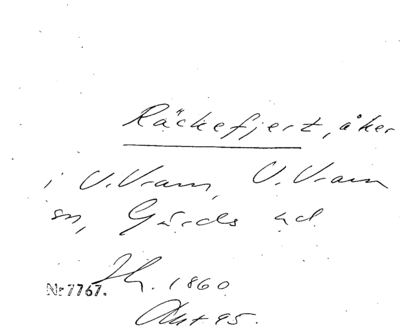 Räckefjert, åker
i V. Vram, V. Vram
sn, Gärds hd
Jh. 1860
Nr 7767.
Akt 95.